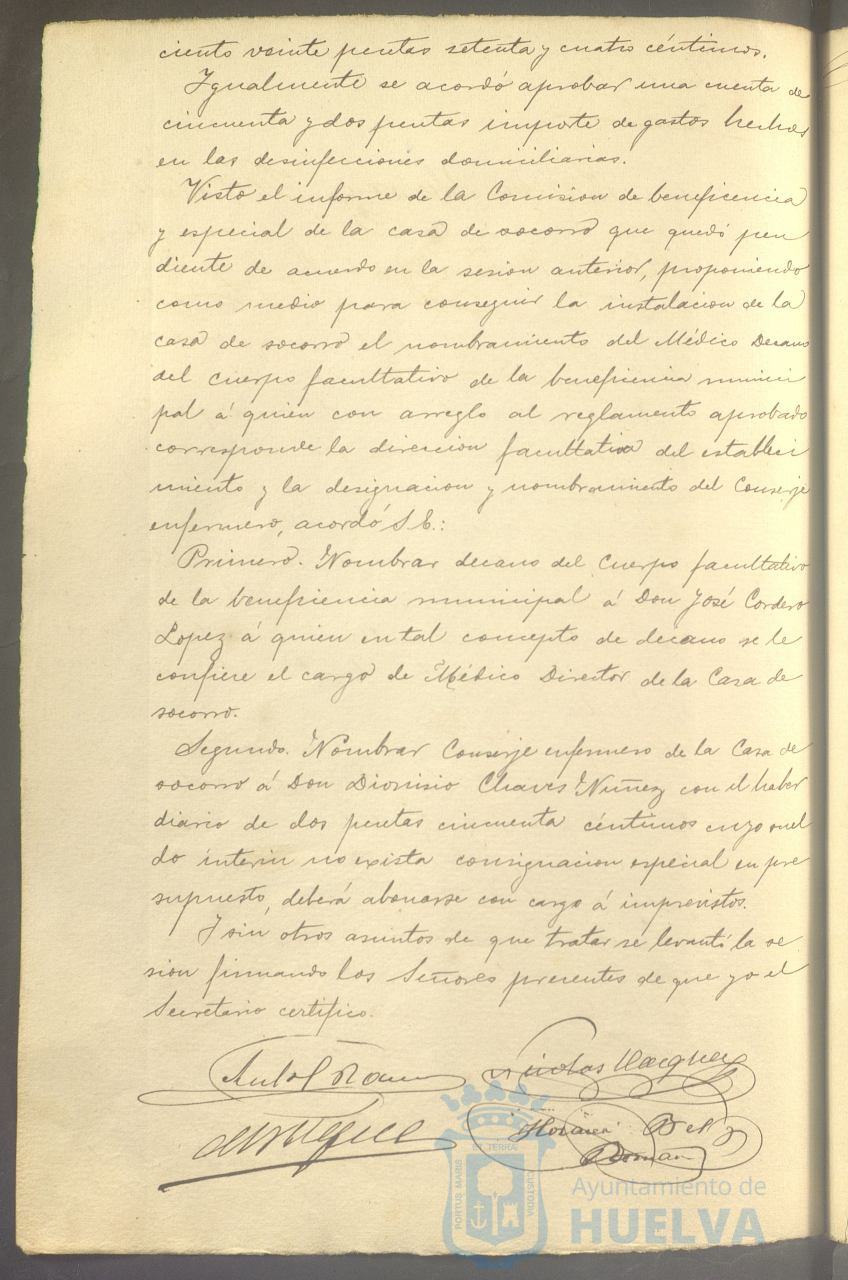 ciento veinte pesetas setenta y cuatro céntimos.
Igualmente se acordó aprobar una cuenta de
cincuenta y dos pesetas importe de gastos hechos
en las desinfecciones domiciliarias.
Visto el informe de la Comision de beneficencia
y especial de la casa de socorro que quedó pen
diente de acuerdo en la sesion anterior, proponiendo
como medio para conseguir la instalacion de la
casa de socorro el nombramiento del Médico Decano
del cuerpo facultativo de la beneficencia munici
pal á quien con arreglo al reglamento aprobado
corresponde la direccion facultativa del estableci
miento y la designacion y nombramiento del Conserje
enfermero, acordó S.E.:
Primero. Nombrar decano del Cuerpo facultativo
de la beneficencia municipal á Don José Cordero
Lopez á quien en tal concepto de decano se le
confiere el cargo de Médico Director de la Casa de
socorro.
Segundo. Nombrar Conserje enfermero de la Casa de
socorro á Don Dionisio Chaves Nuñez con el haber
diario de dos pesetas cincuenta céntimos cuyo suel
do interin no exista consignacion especial en pre
supuesto, deberá abonarse con cargo á imprevistos.
Y sin otros asuntos de que tratar se levantó la se
sion firmando los Señores presentes de que yo el
Secretario certifico.
Nicolas Vazquez
Horacio Bel
Roman
ET TERRA
PORTUS MARIS
CUSTODIA
Ayuntamiento de
HUELVA